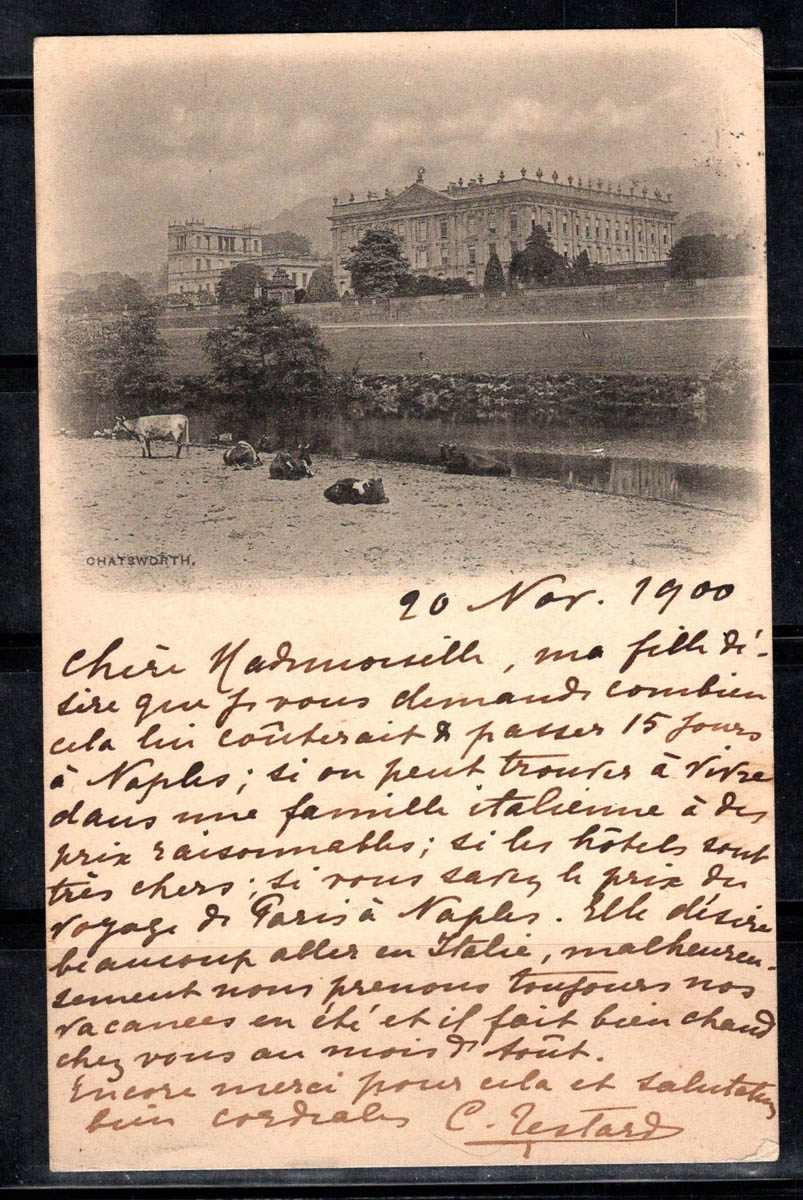 CHATSWORTH.
20 Nov. 1900
Chère Mademoiselle, ma fille dé-
sire que je vous demande combien
cela lui coûterait de passer 15 jours
à Naples; si on peut trouver à vivre
dans une famille italienne à des
prix raisonnables; si les hôtels sont
très chers; si vous savez le prix du
voyage de Paris à Naples. Elle désire
beaucoup aller en Italie, malheureu-
sement nous prenons toujours nos
vacances en été et il fait bien chaud
chez vous au mois d'Août.
Encore merci pour cela et salutations
bien cordiales C. Testard